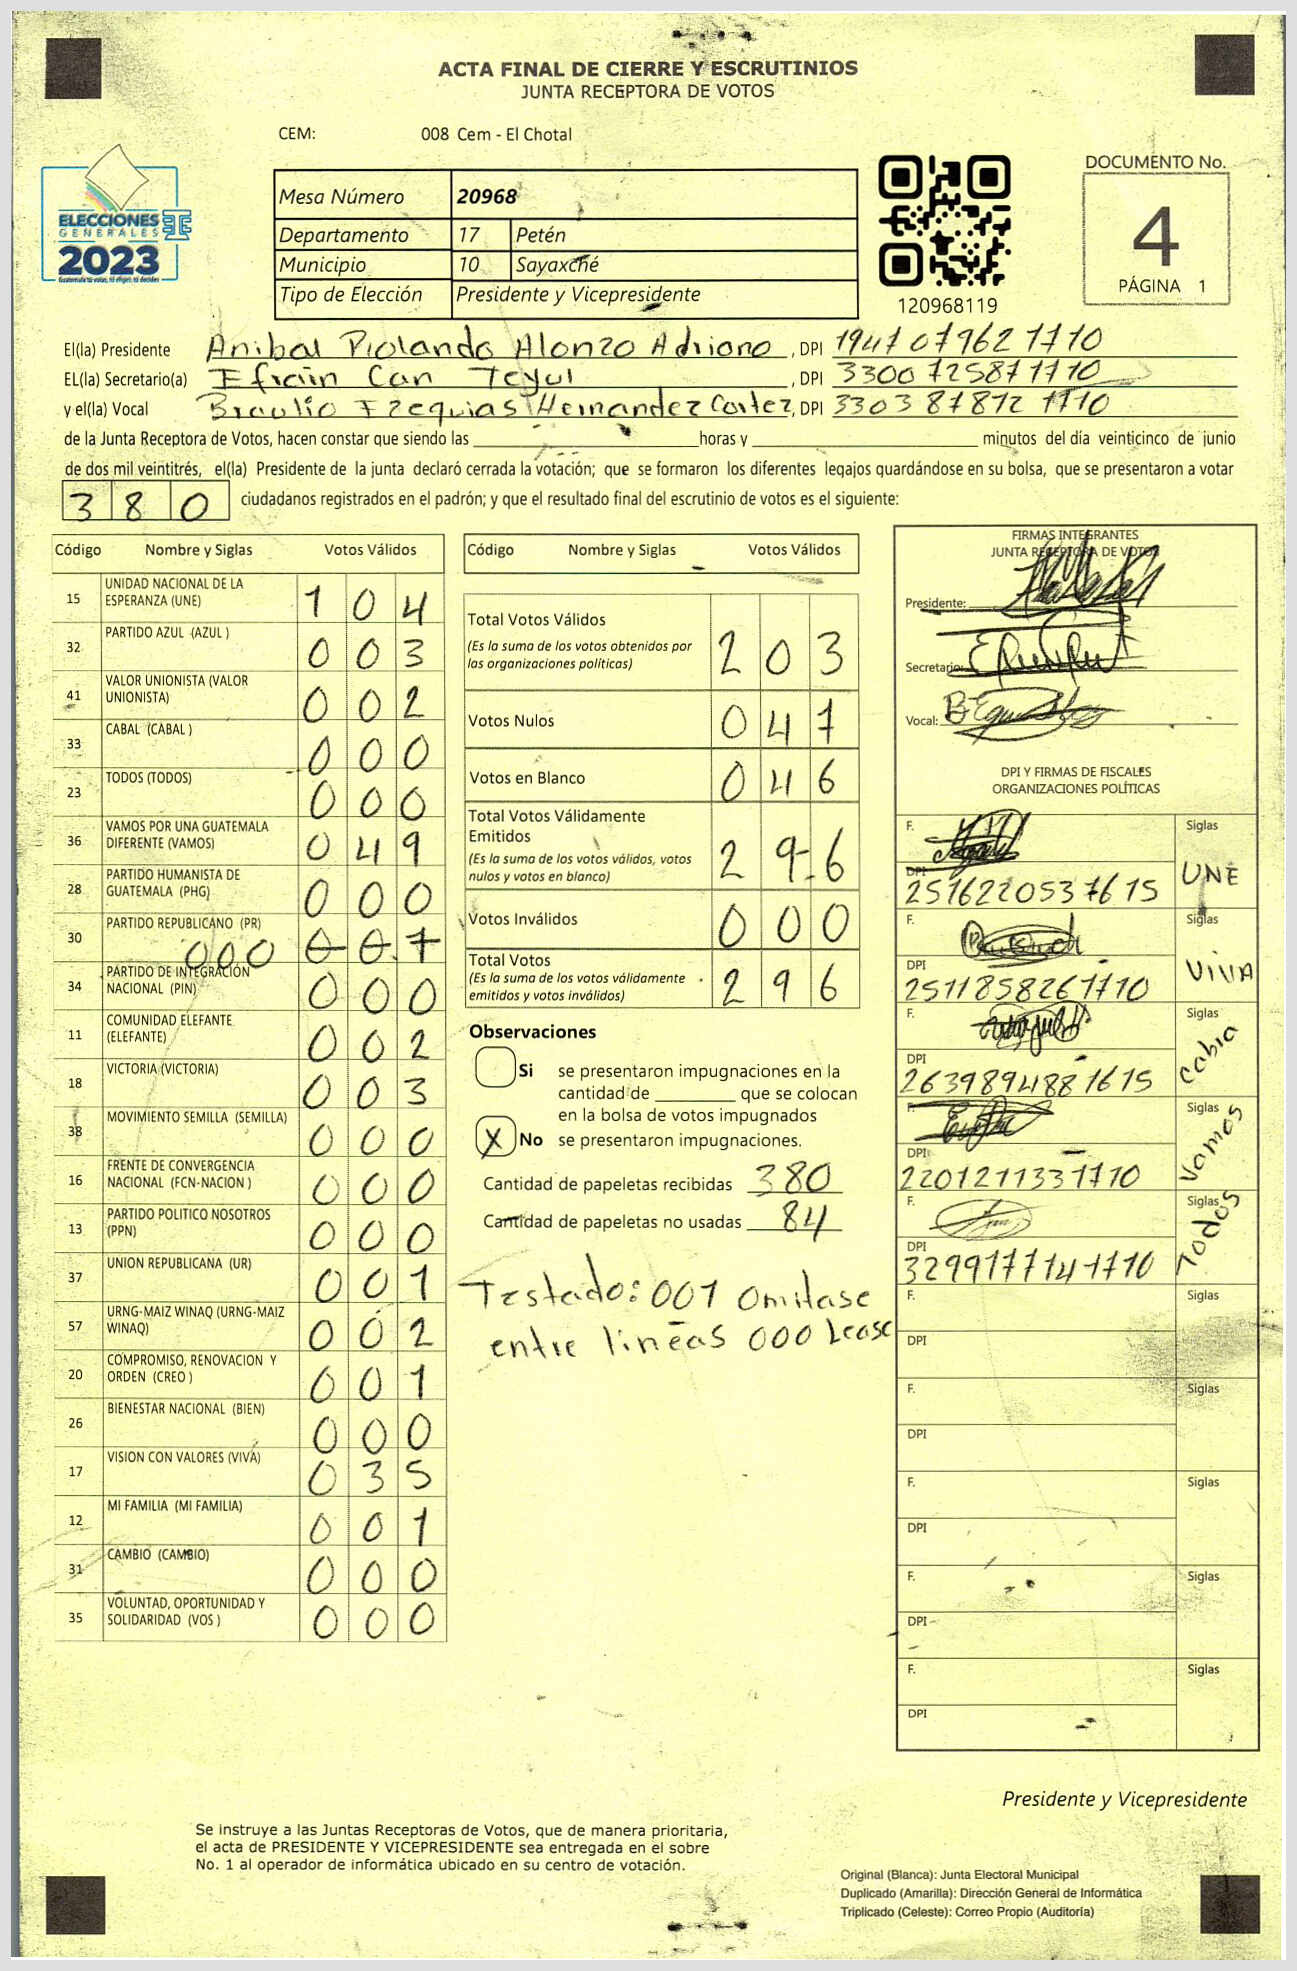 ACTA FINAL DE CIERRE Y ESCRUTINIOS
JUNTA RECEPTORA DE VOTOS
CEM: 008 Cem - El Chotal
ELECCIONES
GENERALES
2023
Guatemala tú votas, tú eliges, tú decides
Mesa Número 20968
Departamento 17 Petén
Municipio 10 Sayaxché
Tipo de Elección Presidente y Vicepresidente
120968119
DOCUMENTO No.
4
PÁGINA 1
El(la) Presidente Anibal Rolando Alonzo Adriano , DPI 1947 07962 1710
EL(la) Secretario(a) Efraín Can Teyul , DPI 3300 72587 1710
y el(la) Vocal Braulio Ezequias Hernandez Cortez, DPI 3303 87812 1710
de la Junta Receptora de Votos, hacen constar que siendo las horas y minutos del día veinticinco de junio
de dos mil veintitrés, el(la) Presidente de la junta declaró cerrada la votación; que se formaron los diferentes legajos guardándose en su bolsa, que se presentaron a votar
380 ciudadanos registrados en el padrón; y que el resultado final del escrutinio de votos es el siguiente:
Código Nombre y Siglas Votos Válidos
15 UNIDAD NACIONAL DE LA ESPERANZA (UNE) 1 0 4
32 PARTIDO AZUL (AZUL ) 0 0 3
41 VALOR UNIONISTA (VALOR UNIONISTA) 0 0 2
33 CABAL (CABAL ) 0 0 0
23 TODOS (TODOS) 0 0 0
36 VAMOS POR UNA GUATEMALA DIFERENTE (VAMOS) 0 4 9
28 PARTIDO HUMANISTA DE GUATEMALA (PHG) 0 0 0
30 PARTIDO REPUBLICANO (PR) 000 0 0 1
34 PARTIDO DE INTEGRACIÓN NACIONAL (PIN) 0 0 0
11 COMUNIDAD ELEFANTE (ELEFANTE) 0 0 2
18 VICTORIA (VICTORIA) 0 0 3
38 MOVIMIENTO SEMILLA (SEMILLA) 0 0 0
16 FRENTE DE CONVERGENCIA NACIONAL (FCN-NACION ) 0 0 0
13 PARTIDO POLITICO NOSOTROS (PPN) 0 0 0
37 UNION REPUBLICANA (UR) 0 0 1
57 URNG-MAIZ WINAQ (URNG-MAIZ WINAQ) 0 0 2
20 COMPROMISO, RENOVACION Y ORDEN (CREO ) 0 0 1
26 BIENESTAR NACIONAL (BIEN) 0 0 0
17 VISION CON VALORES (VIVA) 0 3 5
12 MI FAMILIA (MI FAMILIA) 0 0 1
31 CAMBIO (CAMBIO) 0 0 0
35 VOLUNTAD, OPORTUNIDAD Y SOLIDARIDAD (VOS ) 0 0 0
Código Nombre y Siglas Votos Válidos
Total Votos Válidos 2 0 3
(Es la suma de los votos obtenidos por
las organizaciones políticas)
Votos Nulos 0 4 7
Votos en Blanco 0 4 6
Total Votos Válidamente
Emitidos 2 9 6
(Es la suma de los votos válidos, votos
nulos y votos en blanco)
Votos Inválidos 0 0 0
Total Votos 2 9 6
(Es la suma de los votos válidamente
emitidos y votos inválidos)
Observaciones
Si se presentaron impugnaciones en la
cantidad de que se colocan
en la bolsa de votos impugnados
X No se presentaron impugnaciones.
Cantidad de papeletas recibidas 380
Cantidad de papeletas no usadas 84
Testado: 001 Omitase
entre lineas 000 Lease
FIRMAS INTEGRANTES
JUNTA RECEPTORA DE VOTOS
Presidente:
Secretario:
Vocal:
DPI Y FIRMAS DE FISCALES
ORGANIZACIONES POLÍTICAS
F. Siglas UNE
DPI 2516220537615
F. Siglas VIVA
DPI 2511858261710
F. Siglas Cabia
DPI 2639894881615
F. Siglas Vamos
DPI 2201211331710
F. Siglas Todos
DPI 3299177141710
F. Siglas
DPI
F. Siglas
DPI
F. Siglas
DPI
F. Siglas
DPI
F. Siglas
DPI
Presidente y Vicepresidente
Se instruye a las Juntas Receptoras de Votos, que de manera prioritaria,
el acta de PRESIDENTE Y VICEPRESIDENTE sea entregada en el sobre
No. 1 al operador de informática ubicado en su centro de votación.
Original (Blanca): Junta Electoral Municipal
Duplicado (Amarilla): Dirección General de Informática
Triplicado (Celeste): Correo Propio (Auditoría)